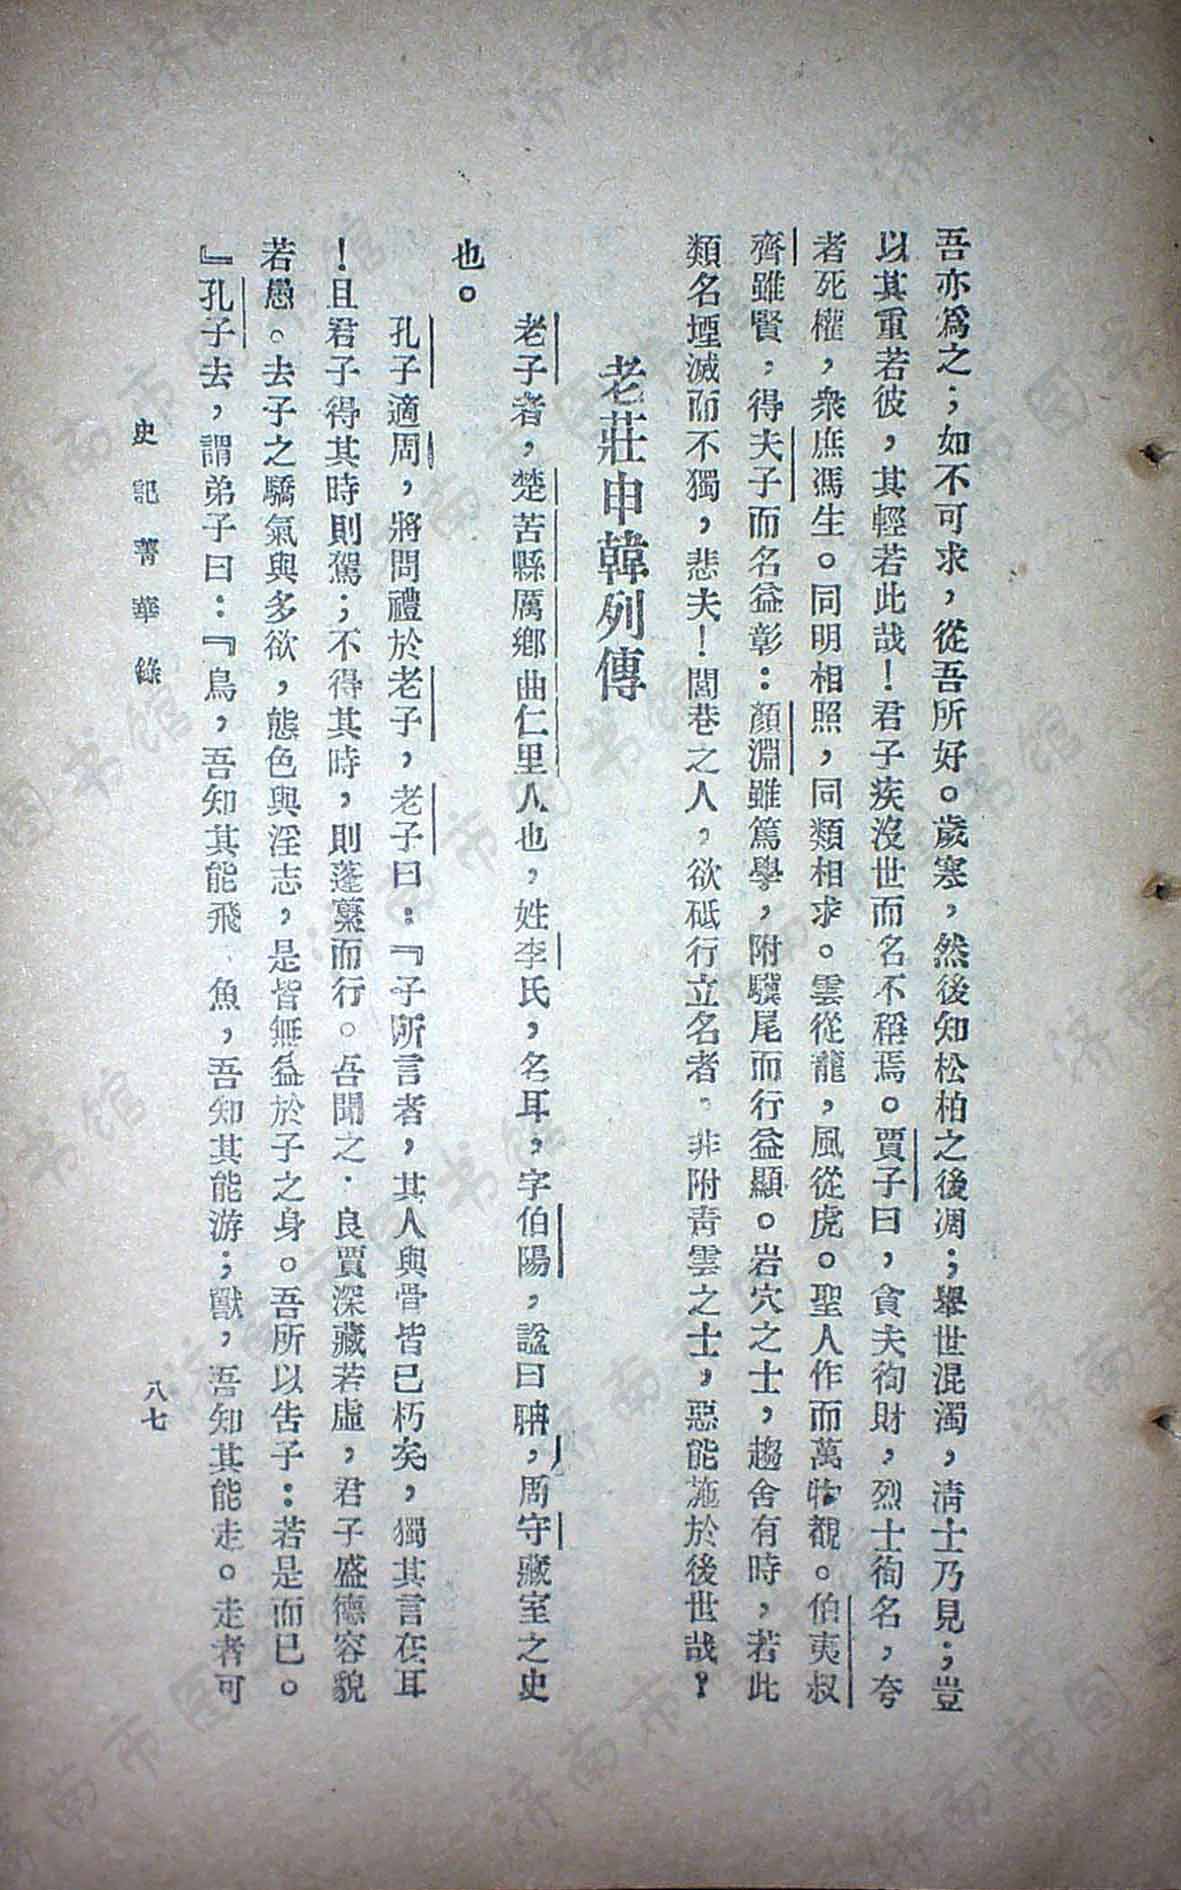 吾亦爲之；如不可求，從吾所好。歲寒，然後知松柏之後凋；舉世混濁，淸士乃見；豈
以其重若彼，其輕若此哉！君子疾沒世而名不稱焉。賈子曰，貪夫徇財，烈士徇名，夸
者死權，衆庶馮生。同明相照，同類相求。雲從龍，風從虎。聖人作而萬物覩。伯夷叔
齊雖賢，得夫子而名益彰：顏淵雖篤學，附驥尾而行益顯。岩穴之士，趨舍有時，若此
類名堙滅而不獨，悲夫！閭巷之人，欲砥行立名者，非附靑雲之士，惡能施於後世哉？
老莊申韓列傳
老子者，楚苦縣厲鄉曲仁里人也，姓李氏，名耳，字伯陽，諡曰聃，周守藏室之史
也。
孔子適周，將問禮於老子，老子曰：『子所言者，其人與骨皆已朽矣，獨其言在耳
！且君子得其時則駕；不得其時，則蓬藁而行。吾聞之．良賈深藏若虛，君子盛德容貌
若愚。去子之驕氣與多欲，態色與淫志，是皆無益於子之身。吾所以告子：若是而已。
』孔子去，謂弟子曰：『鳥，吾知其能飛、魚，吾知其能游；獸，吾知其能走。走者可
史記菁華錄
八七
济南市图书馆